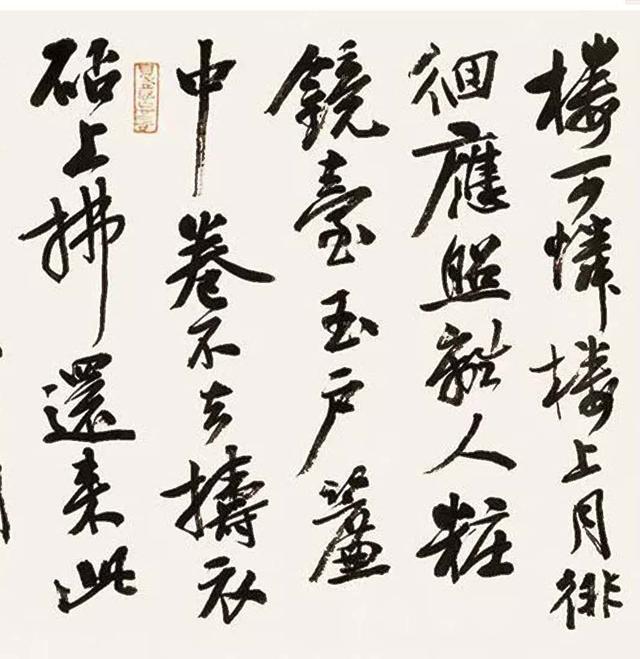 楼可憐楼上月徘
徊應照離人粧
鏡臺玉户簾
中卷不去擣衣
砧上拂還来此